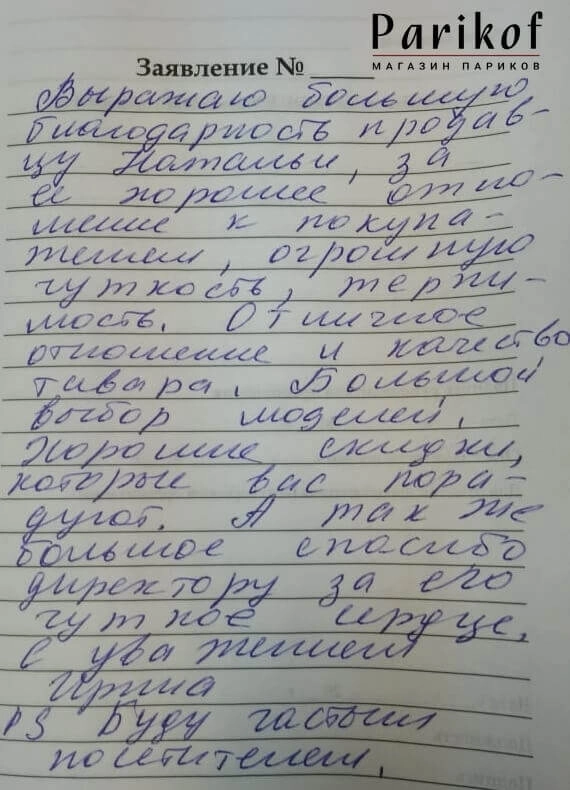 Parikof
МАГАЗИН ПАРИКОВ
Заявление № ____
Выражаю большую
благодарность продав-
цу Натальи, за
её хорошее отно-
шение к покупа-
телям, огромную
чуткость, терпи-
мость. Отличное
отношение и качество
тавара. Большой
выбор моделей.
Хорошие скидки,
которые вас пора-
дуют. А так же
большое спасибо
директору за его
чуткое сердце,
с уважением
Ирина
PS Буду частым
посетителем.